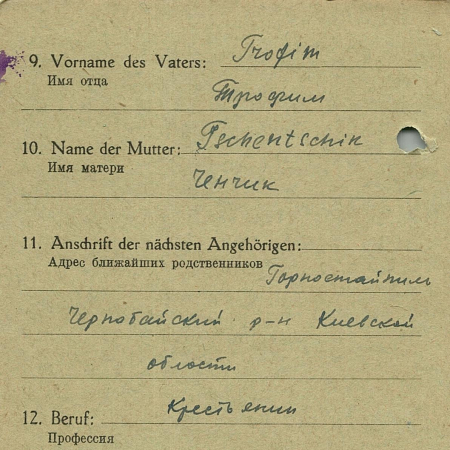 9. Vorname des Vaters: Trofim
Имя отца
Трофим
10. Name der Mutter: Tschentschik
Имя матери
Ченчик
11. Anschrift der nächsten Angehörigen:
Адрес ближайших родственников Горностайпиль
Чернобайский р-н Киевской
области
12. Beruf: Крестьянин
Профессия